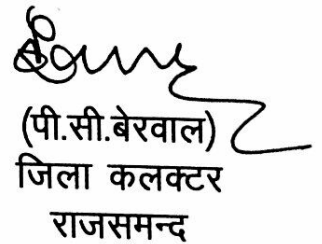 (पी.सी.बेरवाल)
जिला कलक्टर
राजसमन्द